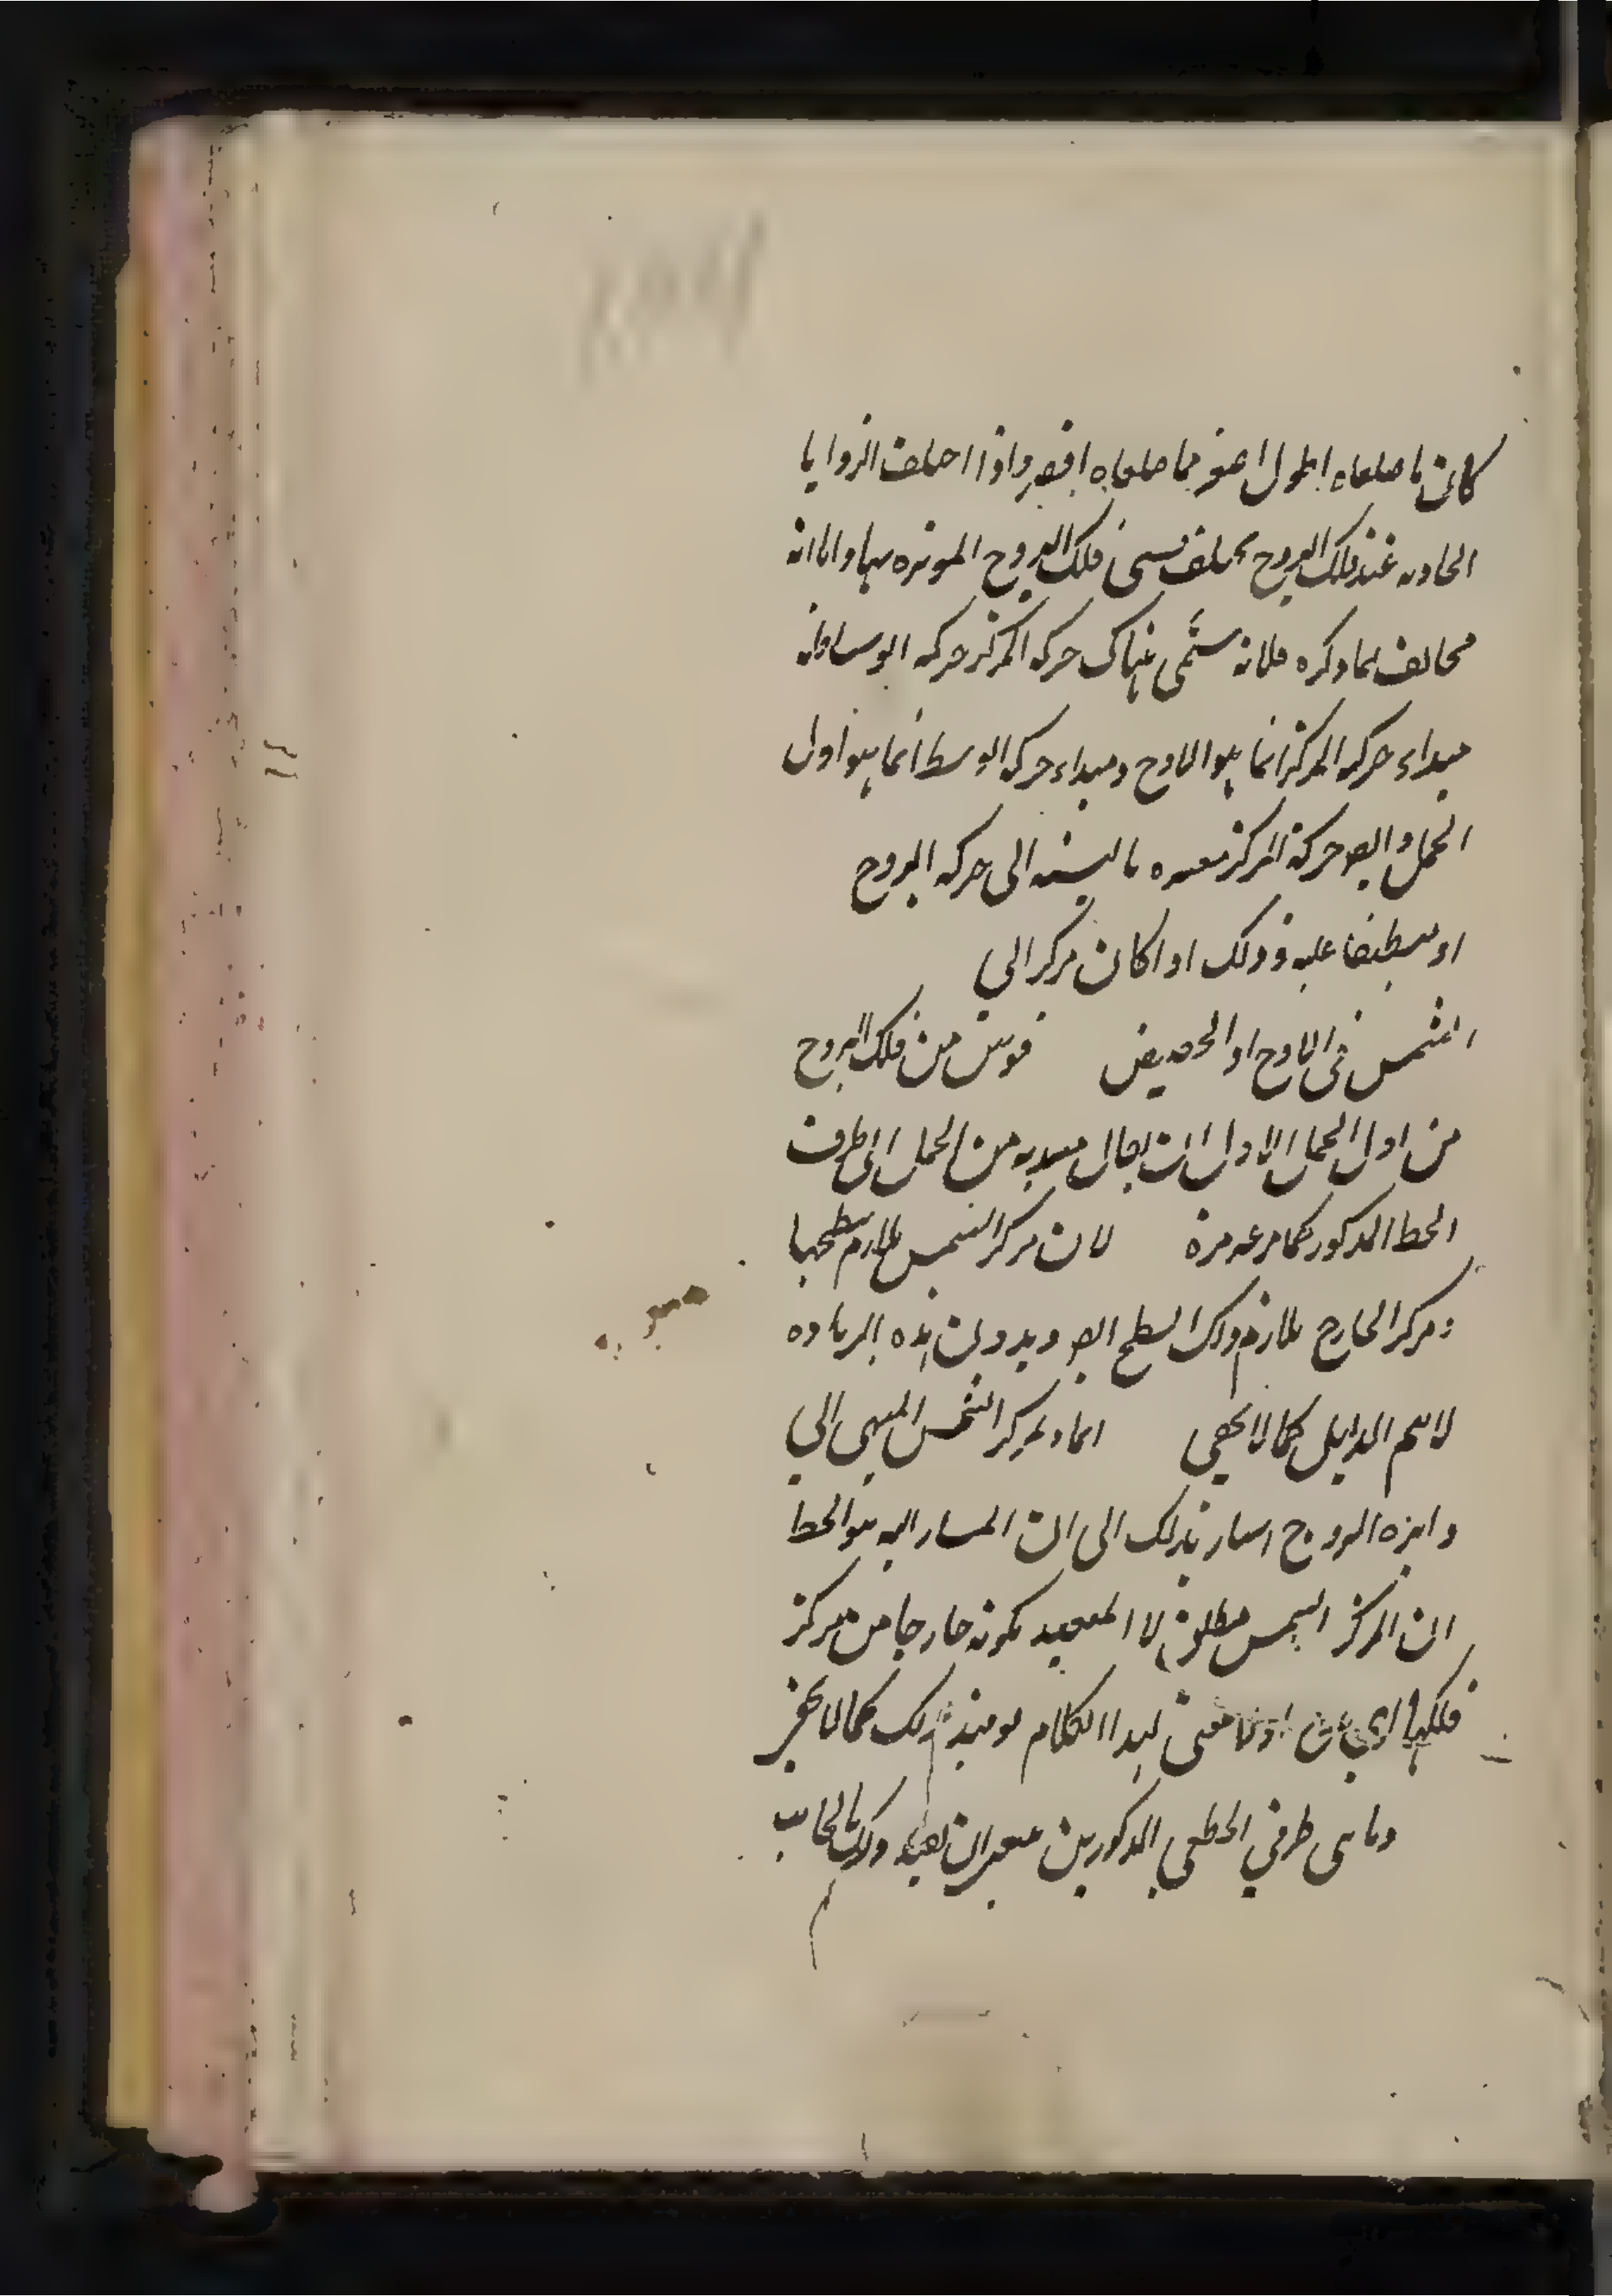 كان ما ضلعاه اطول اصغر مما ضلعاه اقصر واذا اختلف الزوايا
الحادثه عند فلك البروج يختلف قسى فلك البروج الموتره بها واما انه
مخالف لما ذكره فلانه سمّى هناك حركه المركز حركه الوسط فانه
مبداء حركه المركز انما هو الاوج ومبداء حركه الوسط انما هو اول
الحمل وايضا حركة المركز معتبره بالنسبه الى حركه البروج
او منطبقا عليه وذلك اذا كان مركز الى
الشمس فى الاوج او الحضيض قوس من فلك البروج
من اول الحمل الاولى ان يقال مبتديه من الحمل الى طرف
الخط المذكور كما مر غير مرة لان مركز الشمس يلازم سطحها
ومركز الخارج يلازم ذلك السطح ايضا وبدون هذه الزياده
لا يتم الدليل كما لا يخفى المار بمركز الشمس المنتهى الى
دايره البروج اشار بذلك الى ان المشار اليه هو الخط
ان المركز الشمس مطلق لا المقيد بكونه خارجا من مركز
فلكها اى اذ لا معنى لهذا الكلام ذلك كما لا يخفى
وما بين طرفي الخطين المذكورين ذلك بالجانب